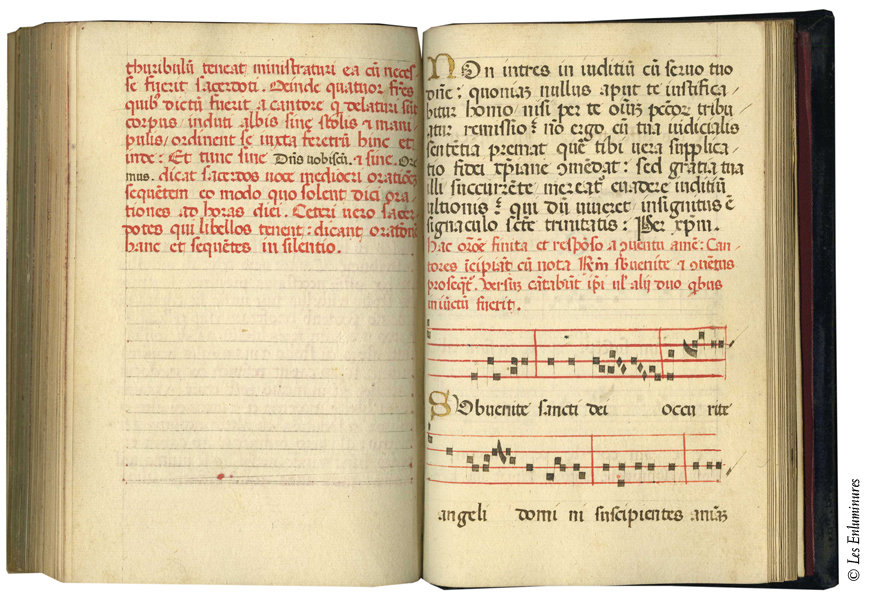 thuribulū teneat ministraturi ea cū neces-
se fuerit sacerdoti. Deinde quatuor fr̄es
quibꝰ dictū fuerit a cantore ꝙ delaturi sūt
corpus, induti albis sine stolis et mani-
pulis, ordinent se iuxta feretrū hinc et
inde: Et tunc sine Dn̄s uobiscū. ⁊ sine. Ore-
mus. dicat sacerdos uoce mediocri orationē
sequētem eo modo quo solent dici ora-
tiones ad horas diei. Ceteri uero sacer-
dotes qui libellos tenent: dicant orationē
hanc et sequētes in silentio.
NOn intres in iuditiū cū seruo tuo
dn̄e: quoniaꝫ nullus aput te iustifica-
bitur homo, nisi per te oīuꝫ pctōr tribu-
atur remissio. nō ergo cū tua iudicialis
sentētia premat, quē tibi uera supplica-
tio fidei xp̄iane ꝯmēdat: sed gratia tua
illi succurrēte mereatꝰ euadere iuditiū
ultionis. qui dū uiueret insignitus ē
signaculo scē̄ trinitatis: Per xp̄m.
Hac orōe finita et respōso a ꝯuentu amē: Can-
tores īcipiāt cū nota R̄m Sbuenite ⁊ ꝯuētus
proseqꝰt. Versuꝫ cātabūt ip̄i ul' alij duo qꝰbus
iniūctū fuerit.
SUbuenite sancti dei occurrite
angeli domi ni suscipientes animāꝫ
© Les Enluminures